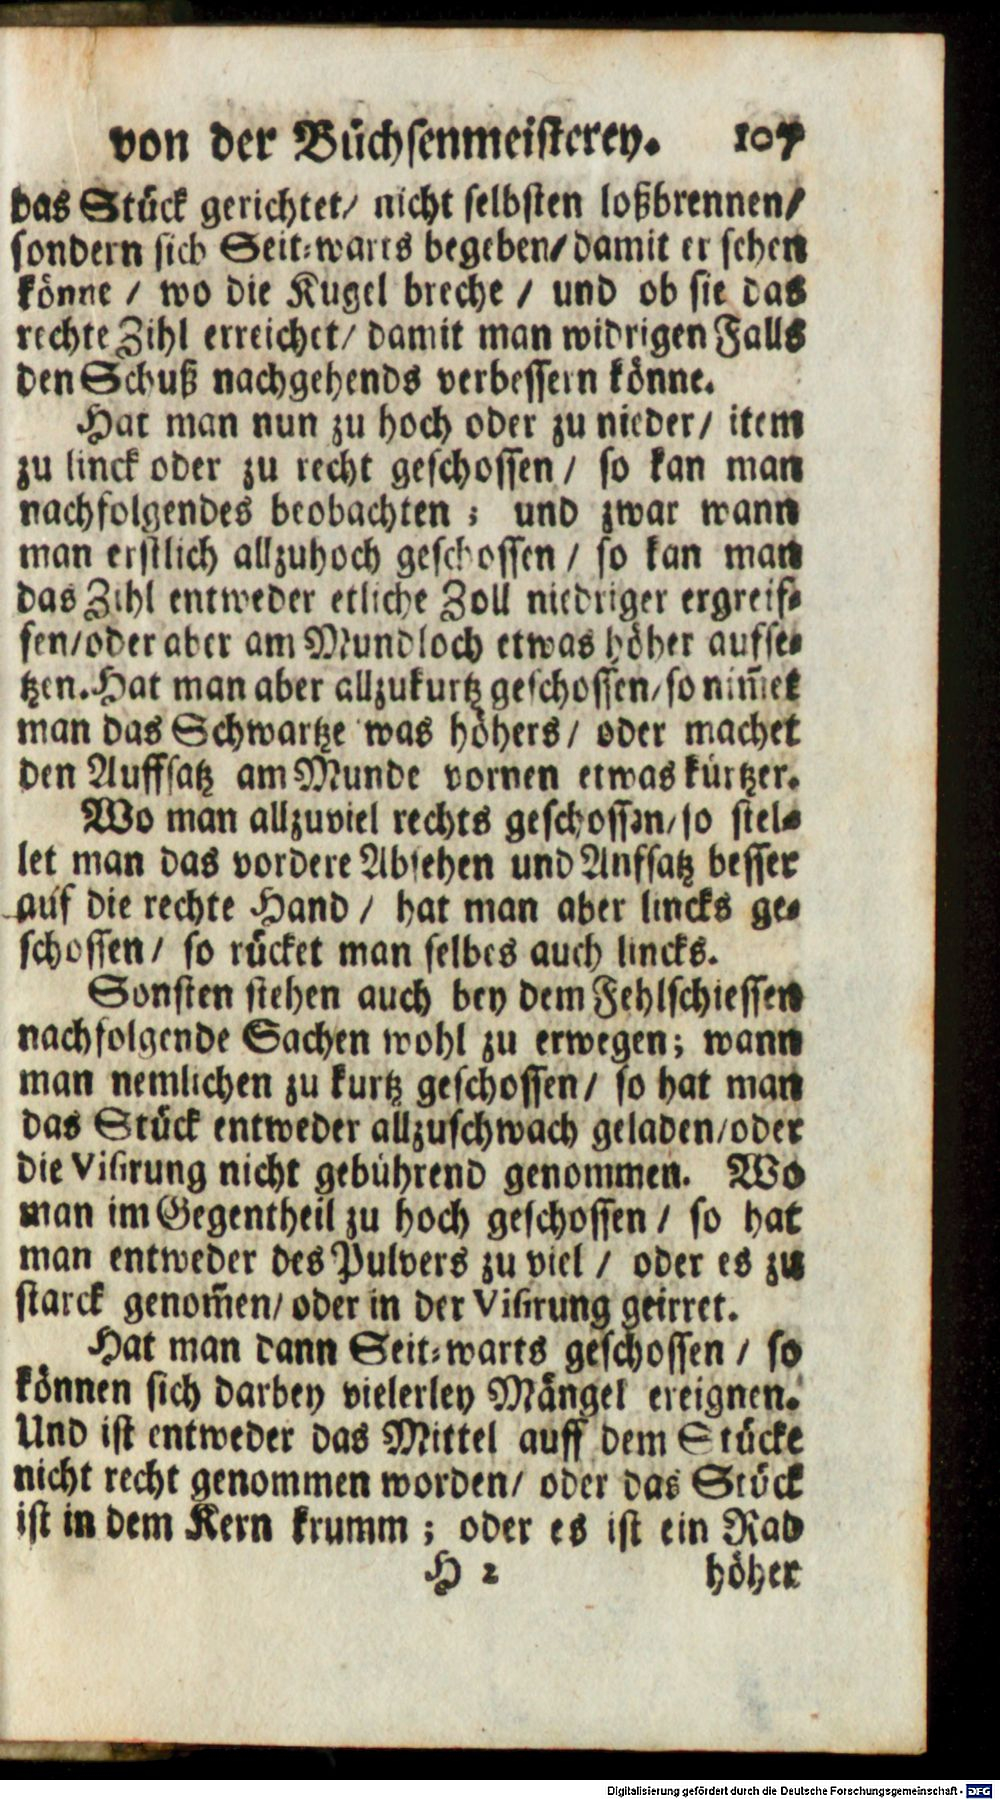 von der Büchsenmeisterey. 107
das Stück gerichtet/ nicht selbsten loßbrennen/
sondern sich Seit-warts begeben/ damit er sehen
könne / wo die Kugel breche / und ob sie das
rechte Zihl erreichet/ damit man widrigen Falls
den Schuß nachgehends verbessern könne.
Hat man nun zu hoch oder zu nieder/ item
zu linck oder zu recht geschossen / so kan man
nachfolgendes beobachten ; und zwar wann
man erstlich allzuhoch geschossen / so kan man
das Zihl entweder etliche Zoll niedriger ergreif-
fen/oder aber am Mundloch etwas höher aufse-
tzen. Hat man aber allzukurtz geschossen/ so nim̃et
man das Schwartze was höhers/ oder machet
den Auffsatz am Munde vornen etwas kürtzer.
Wo man allzuviel rechts geschossen/ so stel-
let man das vordere Absehen und Anfsatz besser
auf die rechte Hand / hat man aber lincks ge-
schossen/ so rücket man selbes auch lincks.
Sonsten stehen auch bey dem Fehlschiessen
nachfolgende Sachen wohl zu erwegen; wann
man nemlichen zu kurtz geschossen/ so hat man
das Stück entweder allzuschwach geladen/oder
die Visirung nicht gebührend genommen. Wo
man im Gegentheil zu hoch geschossen / so hat
man entweder des Pulvers zu viel / oder es zu
starck genom̃en/ oder in der Visirung geirret.
Hat man dann Seit-warts geschossen / so
können sich darbey vielerley Mängel ereignen.
Und ist entweder das Mittel auff dem Stücke
nicht recht genommen worden/ oder das Stück
ist in dem Kern krumm ; oder es ist ein Rad
H 2 höher
Digitalisierung gefördert durch die Deutsche Forschungsgemeinschaft - DFG